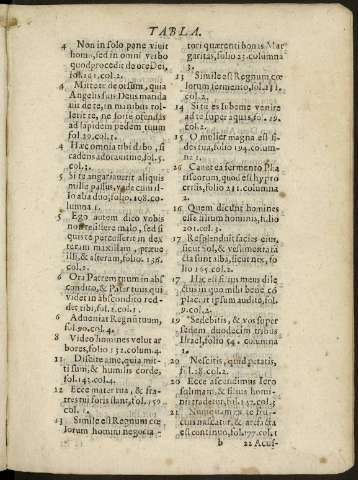 TABLA.
4 Non in solo pane viuit
homo, sed in omni verbo
quod procedit de ore Dei,
fol. col. 2.
4 Mitte te deorsum, quia
Angelis suis Deus manda
uit de te, in manibus tol-
lent te, ne forte offendas
ad lapidem pedem tuum
fol. 29. col. 1.
4 Hæc omnia tibi dabo, si
cadens adoraueris, fol. 5.
col. 3.
5 Si te angariauerit aliquis
mille passus, vade cum il-
lo alia duo, folio, 198. co-
lumna 1.
5 Ego autem dico vobis
non resistere malo, sed si
quis te percusserit in dex
teram maxillam, præue
illi, & alteram, folio, 198.
col. 2.
6 Ora Patrem tuum in abs
condito, & Pater tuus qui
videt in abscondito red-
det tibi, fol. 2. col. 1.
6 Adueniat Regnũ tuum,
fol. 90. col. 4.
8 Video homines velut ar
bores, folio 132. colum. 4.
11 Discite à me, quia mit-
ti sum, & humilis corde,
fol. 143. col. 4.
12 Ecce mater tua, & fra-
tres tui foris stant, fol. 159
col. 1.
13 Simile est Regnum cœ
lorum homini negocia-
tori quærenti bonas Mar
garitas, folio 23. columna
3.
13 Simile est Regnum cœ
lorum fermento, fol. 211.
col. 2.
14 Si tu es Iube me venire
ad te super aquas, fol. 19.
col. 2.
15 O mulier magna est fi-
des tua, folio 194. colum-
na 2.
16 Cauete a fermento Pha
riseorum, quod est hypo
crisis, folio 211. columna
2.
16 Quem dicunt homines
esse filium hominis, folio
201. col. 3.
17 Resplenduit facies eius,
sicut Sol, & vestimenta
cta sunt alba, sicut nix, fo
lio 165. col. 2.
17 Hic est filius meus dile
ctus in quo mihi bene cõ
placui: ipsum audite, fol.
9. col. 2.
19 Sedebitis, & vos super
sedem duodecim tribus
Israel, folio 54. columna
1.
20 Nescitis, quid petatis,
fol. 28. col. 2.
20 Ecce ascendimus Iero
solimam, & filius homi-
nis tradetur, fol. 147. col. 3
21 Nunquam ex te fru-
ctus nascatur, & arefacta
est continuo, fol. 177. col. 1
b 22 Acus-